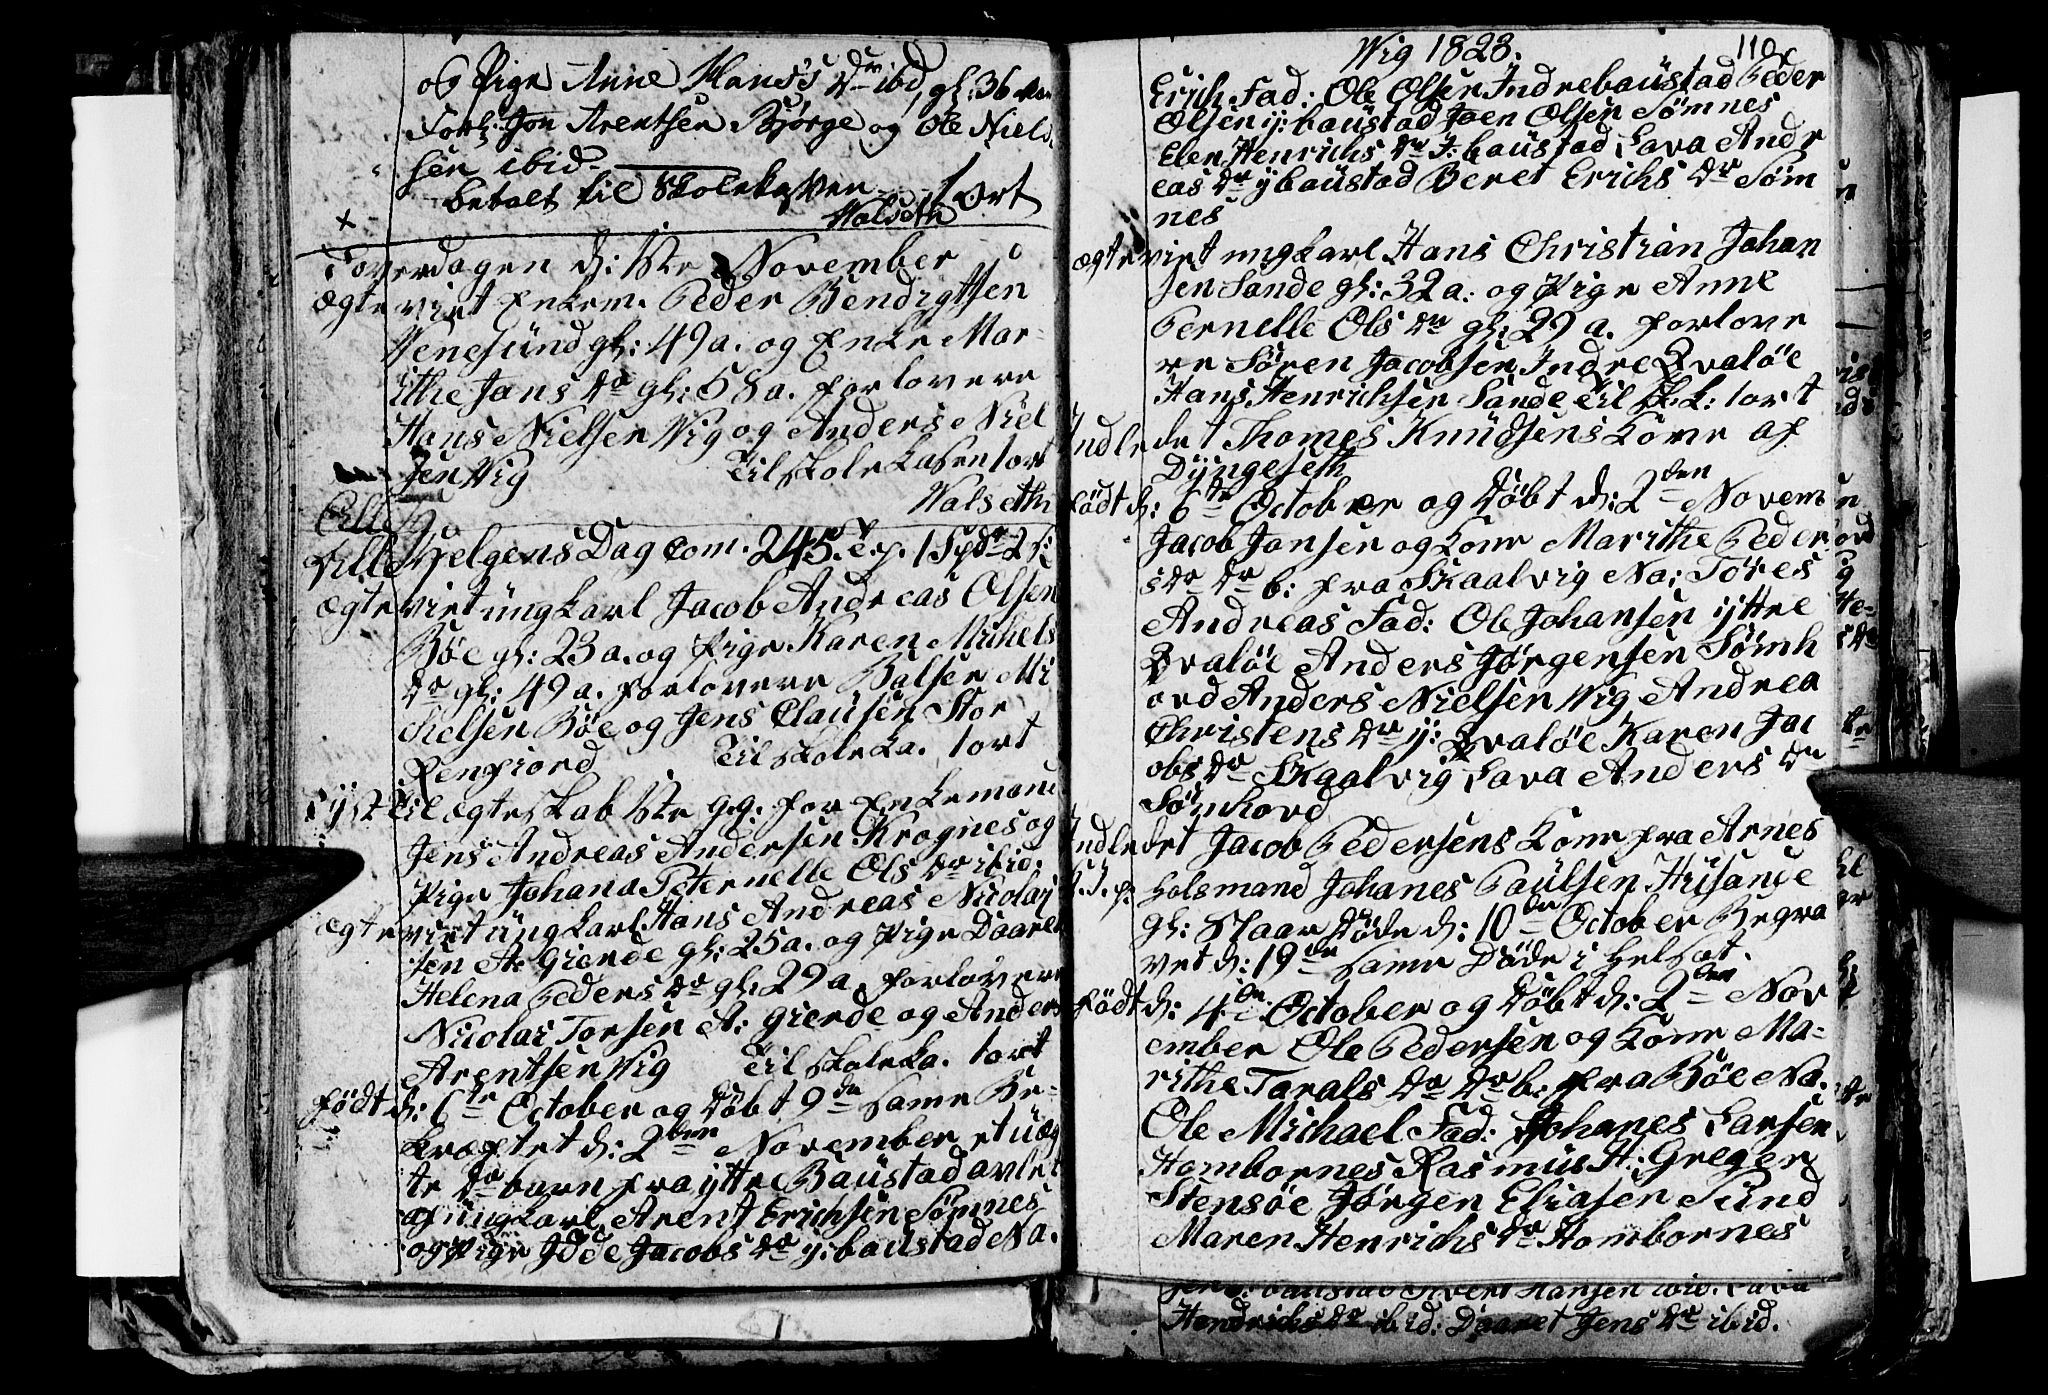 og Pige Anne Hans's Dr ibid, gl: 36 Aar
Forl: Jon Arentsen Bjørge og Ole Niel
sen ibid.
betalt til Skolekassen 1 ort
Walseth
+
Løverdagen d: 1ste November
ægteviet Enkem. Peder Bendigtsen
Wenesund gl: 49 a. og Enke Mar-
ithe Jans Dr gl: 58 a. forlovere
Hans Nielsen Wig og Anders Niel
sen Wig Til Skolekasen 1 ort
Walseth
Alle Helgens Dag com. 245. Exp. 1 Spdr 2 ſ:
ægteviet ungkarl Jacob Andreas Olsen
Bøe gl: 23 a. og Pige Karen Mikels
Dr gl: 49 a. forlovere Balser Mi
chelsen Bøe og Jens Clausen Stor
Renfiord Til Skoleka. 1 ort
Lyst til ægteskab 1ste g.g. for Enkemand
Jens Andreas Andersen Krognes og
Pige Johana Peternelle Ols Dr ibid:
ægteviet ungkarl Hans Andreas Nicolai
sen A: Gierde gl: 25 a. og Pige Daaret
Helena Peders Dr gl: 29 a. forlovere
Nicolai Torsen A: Gierde og Anders
Arentsen Wig Til Skoleka. 1 ort
født d: 6te October og døbt 9de same Be-
kræftet d: 2den November et uæg
te Dr barn fra ytre Baustad avlet
af ungkarl Arent Erichsen Sømnes
og Pige Idde Jacobs Dr y: baustad Na.
Wig 1828. 110
Erich. Fad: Ole Olsen Indrebaustad Peder
Olsen y: baustad Joen Olsen Sømnes
Elen Henrichs Dr I: baustad Lava Andr
eas Dr y baustad Beret Erichs Dr Søm
nes
ægteviet ungkarl Hans Christian Johan
sen Sande gl: 32 a: og Pige Anne
Pernelle Ols Dr gl: 29 a. forlove
re Søren Jacobsen Indre Qvaløe
Hans Henrichsen Sande til Sk.k: 1 ort
Indledet Thomes Knudsens kone af
Dyngeseth
født d: 6te October og døbt d: 2den Novem
Jacob Jansen og kone Marithe Peder
s Dr Dr b: fra Skaalvig Na: Tøres
Andreas Fad: Ole Johansen ijttre
Qvaløe Anders Jørgensen Sømh
ovd Anders Nielsen Wig Andrea
Christens Dr y: Qvaløe Karen Jac
obs Dr Skaalvig Lava Anders Dr
Sømhovd
Indledet Jacob Pedersens kone fra Arnes
J. P. holsmand Johanes Paulsen Husande
gl: Aar døde d: 10de October Begra
vet d: 19de same Døde i helsot.
født d: 4de October og døbt d: 2den Nov
ember Ole Pedersen og kone Ma-
rithe Tarals Dr Dr b: fra Bøe Na.
Ole Michael Fad: Johanes Larsen
Hombornes Rasmus H: Greger
Stensøe Jørgen Eliasen Sund
Maren Henrichs Dr Hombornes
baustad Sivert Hansen ibid. Lava
Hendrichs Dr ibid: Daaret Jens Dr ibid.